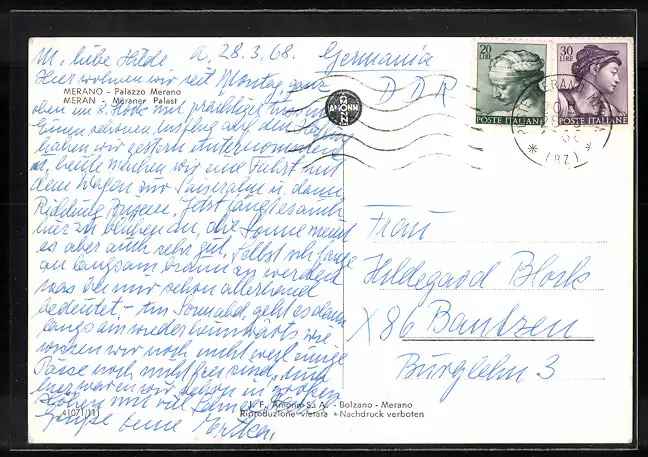 M. liebe Hilde d. 28.3.68.
Germania
DDR
Hier wohnen wir seit Montag ganz
MERANO - Palazzo Merano
MERAN - Meraner Palast
oben im 8. Stock mit prächtiger
Einen schönen Ausflug auf den
haben wir gestern unternommen
heute machen wir eine Fahrt mit
dem Wagen zur u. dann
Richtung Jetzt fängt es auch
hier zu blühen an, die Sonne meint
es aber auch sehr gut, selbst ich fange
an langsam braun zu werden
was bei mir schon allerhand
bedeutet. - Am Sonnabd. geht es dann
langsam wieder heimwärts, wie
wissen wir noch nicht weil einige
Pässe noch nicht frei sind, und
hier waren wir schon in großen
Höhen mit viel
Grüße Deine
20 LIRE
POSTE ITALIANE
30 LIRE
POSTE ITALIANE
(BZ)
AMONN
Frau
Hildegard Block
X 86 Bautzen
Burglehn 3
41071/11
J. F. Amonn S. A. - Bolzano - Merano
Riproduzione vietata - Nachdruck verboten